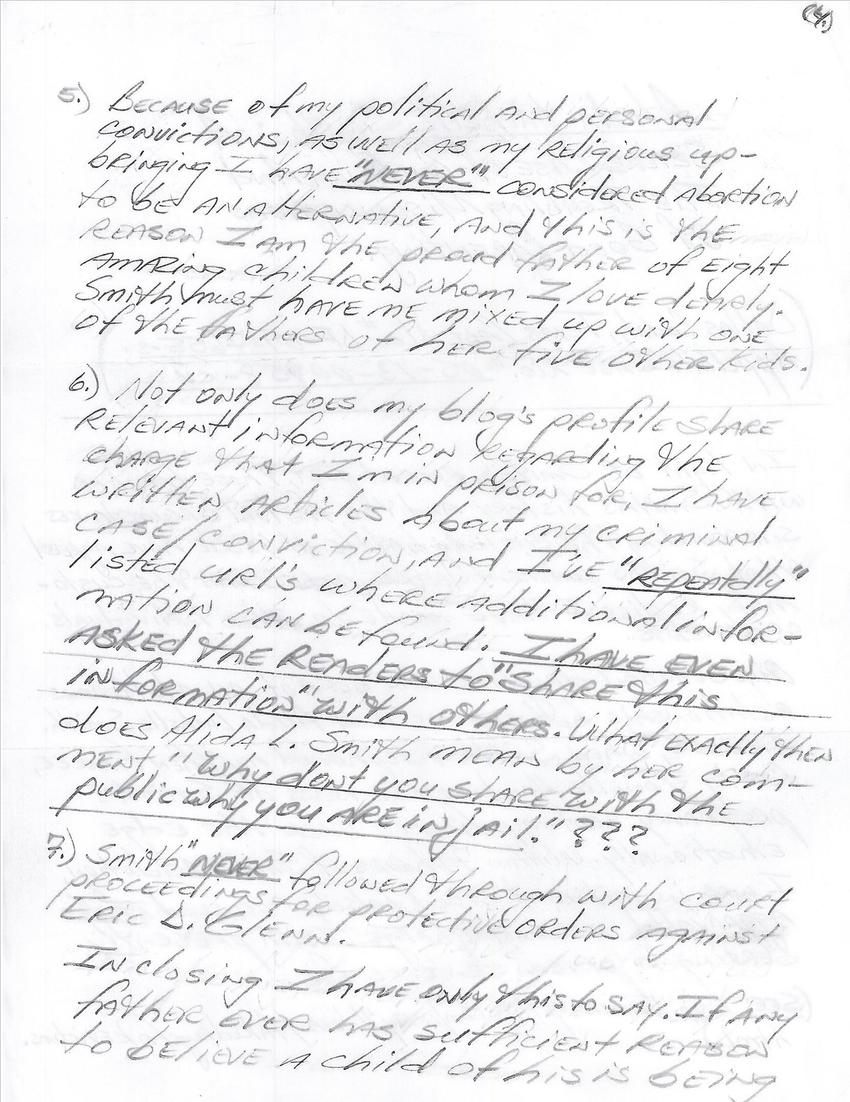 (4.)
5.) BECAUSE of my political AND pERSONAl
CONVICTIONS, AS WEll AS my REligious up-
bringing I HAVE "NEVER" CONSIDERED AbORTION
to bE AN AltERNATIVE, AND this is thE
REASON I AM thE proud fAthER of Eight
AMAZING childREN whom I lovE dEARly.
Smith must HAVE ME mixED up with ONE
of thE fAthERS of hER fivE OthER Kids.
6.) Not only doEs my blog's profilE shARE
RElEVANT iNformAtioN REgARding thE
chARgE thAt I'm iN prisoN for, I hAVE
WRittEN ARticlEs About my criminAl
CASE/CONVICTION, AND I'VE "REpEAtdly"
listED URl's whERE ADDitioNAl iNfor-
mAtioN CAN bE fouND. I HAVE EVEN
ASKED thE READERS to "ShARE this
iNformAtioN" with OthERS. WhAt EXActly thEN
doEs Alida L. Smith mEAN by hER com-
mENt "Why doN't you ShARE with thE
public why you ARE iN jAil."???
7.) Smith "NEVER" followED through with court
pROCEEDiNgs foR pRotEctivE ORDERS AgAiNst
Eric D. GlENN.
IN closiNg I hAVE oNly this to SAY. If ANy
fAthER EVER hAs sufficiENt REASON
to bEliEVE A child of his is bEiNg